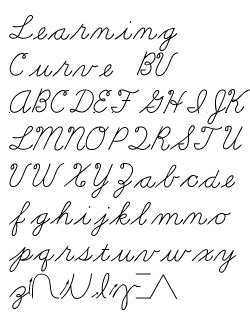 Learning
Curve BV
ABCDEF GHIJK
LMNOPQRSTU
VWXYZabcde
fghijklmno
pqrstuvwxy
z